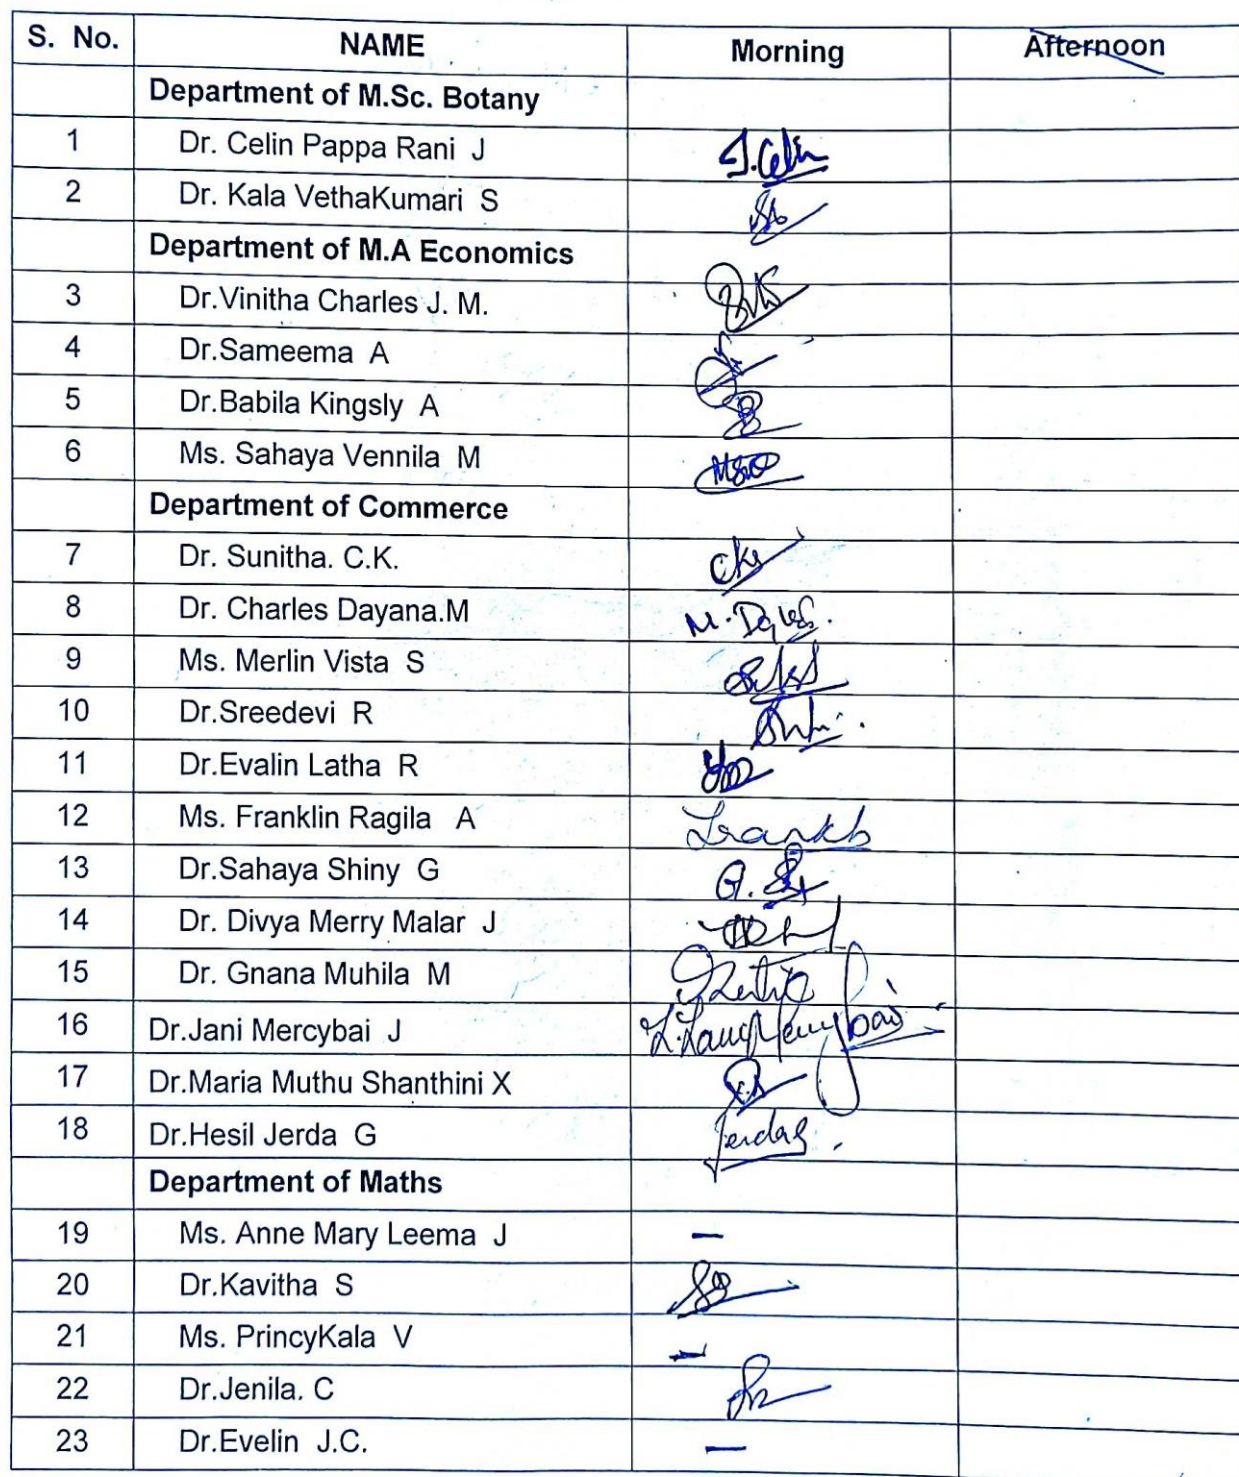 S. No. NAME Morning Afternoon
Department of M.Sc. Botany
1 Dr. Celin Pappa Rani J J.Celin
2 Dr. Kala VethaKumari S
Department of M.A Economics
3 Dr.Vinitha Charles J. M.
4 Dr.Sameema A
5 Dr.Babila Kingsly A
6 Ms. Sahaya Vennila M
Department of Commerce
7 Dr. Sunitha. C.K.
8 Dr. Charles Dayana.M
9 Ms. Merlin Vista S
10 Dr.Sreedevi R
11 Dr.Evalin Latha R
12 Ms. Franklin Ragila A
13 Dr.Sahaya Shiny G
14 Dr. Divya Merry Malar J
15 Dr. Gnana Muhila M
16 Dr.Jani Mercybai J
17 Dr.Maria Muthu Shanthini X
18 Dr.Hesil Jerda G
Department of Maths
19 Ms. Anne Mary Leema J —
20 Dr.Kavitha S
21 Ms. PrincyKala V —
22 Dr.Jenila. C
23 Dr.Evelin J.C. —